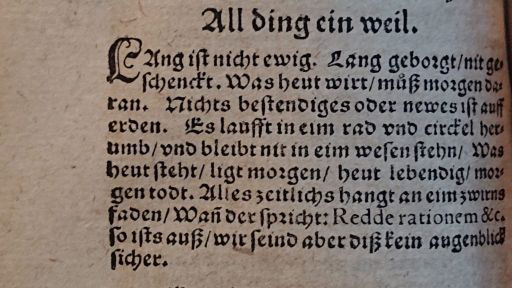 All ding ein weil.
LAng ist nicht ewig. Lang geborgt/ nit ge⸗
schenckt. Was heut wirt/ můß morgen da⸗
ran. Nichts bestendiges oder newes ist auff
erden. Es laufft in eim rad vnd circkel her⸗
umb/ vnd bleibt nit in eim wesen stehn/ Was
heut steht/ ligt morgen/ heut lebendig/ mor⸗
gen todt. Alles zeitlichs hangt an eim zwirns
faden/ Wañ der spricht: Redde rationem &c.
so ists auß/ wir seind aber diß kein augenblick
sicher.